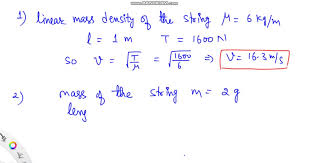 1) linear mass density of the string μ = 6 kg/m
l = 1 m T = 1600 N
so v = √(T/μ) = √(1600/6) ⇒ V = 16.3 m/s
2) mass of the string m = 2 g
leng